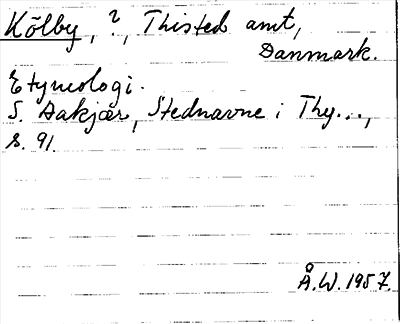 Kölby, ?, Thisted amt,
Danmark.
Etymologi.
S. Aakjær, Stednavne i Thy...,
s. 91.
Å.W. 1957.